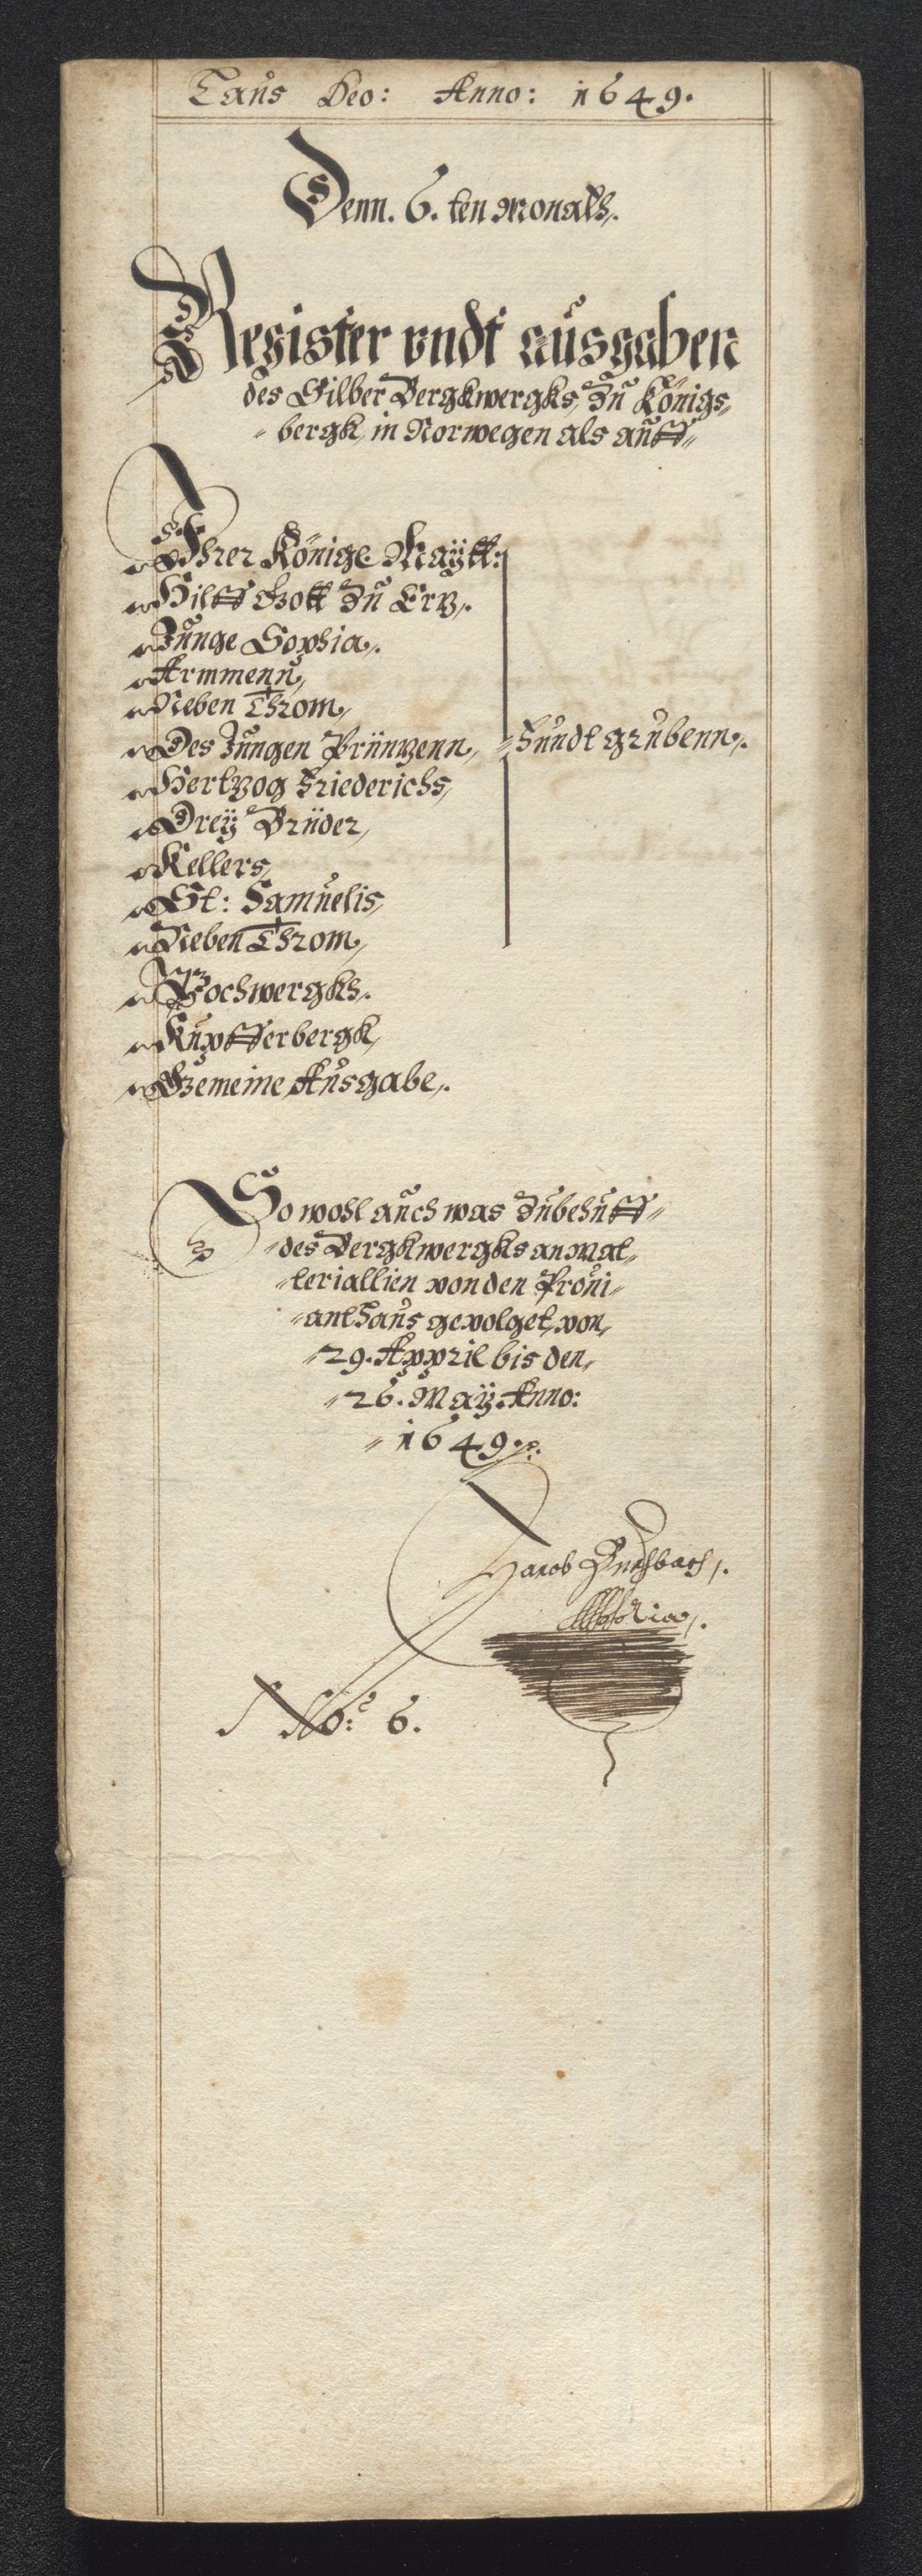 Laus Deo: Anno: 1649.
Denn. 6. ten Monats,.
Register vndt ausgaben
des Silber Bergkwergks, Zu Königs,,
,, bergk, in Norwegen als auff,,
Ihrer Königl. Maÿtt:
Hilff Gott Zu Ertz,.
Junge Sophia,.
Armmenn,
Neben Throm,
Des Jungen Prüntzenn, ,, Fundtgrubenn,.
Hertzog Friederichs,
Dreÿ Brüder,
Kellers,
St: Samuelis,
Neben Throm,
Pochwergks,.
Kupfferbergk,
Gemeine Ausgabe,.
So wohl auch was Zubehuff,,
,, des Bergkwergks an mat,,
,, teriallien von den Proui,,
,, anthaus gevolget, von,
,, 29. Appril bis den,
,, 26. Maÿ. Anno:
,, 1649.
Jacob
No: 6.